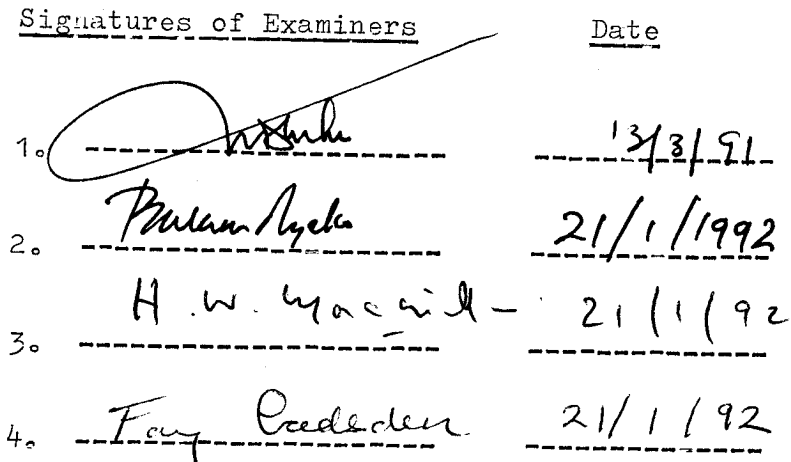 Signatures of Examiners Date
1. 13/3/91
2. 21/1/1992
3. H. W. 21/1/92
4. Fay 21/1/92